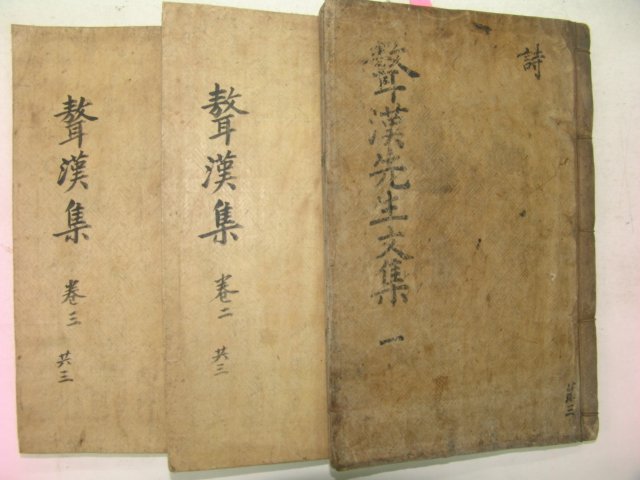 詩
聱漢先生文集 一
三
聱漢集 卷二 共三
聱漢集 卷三 共三